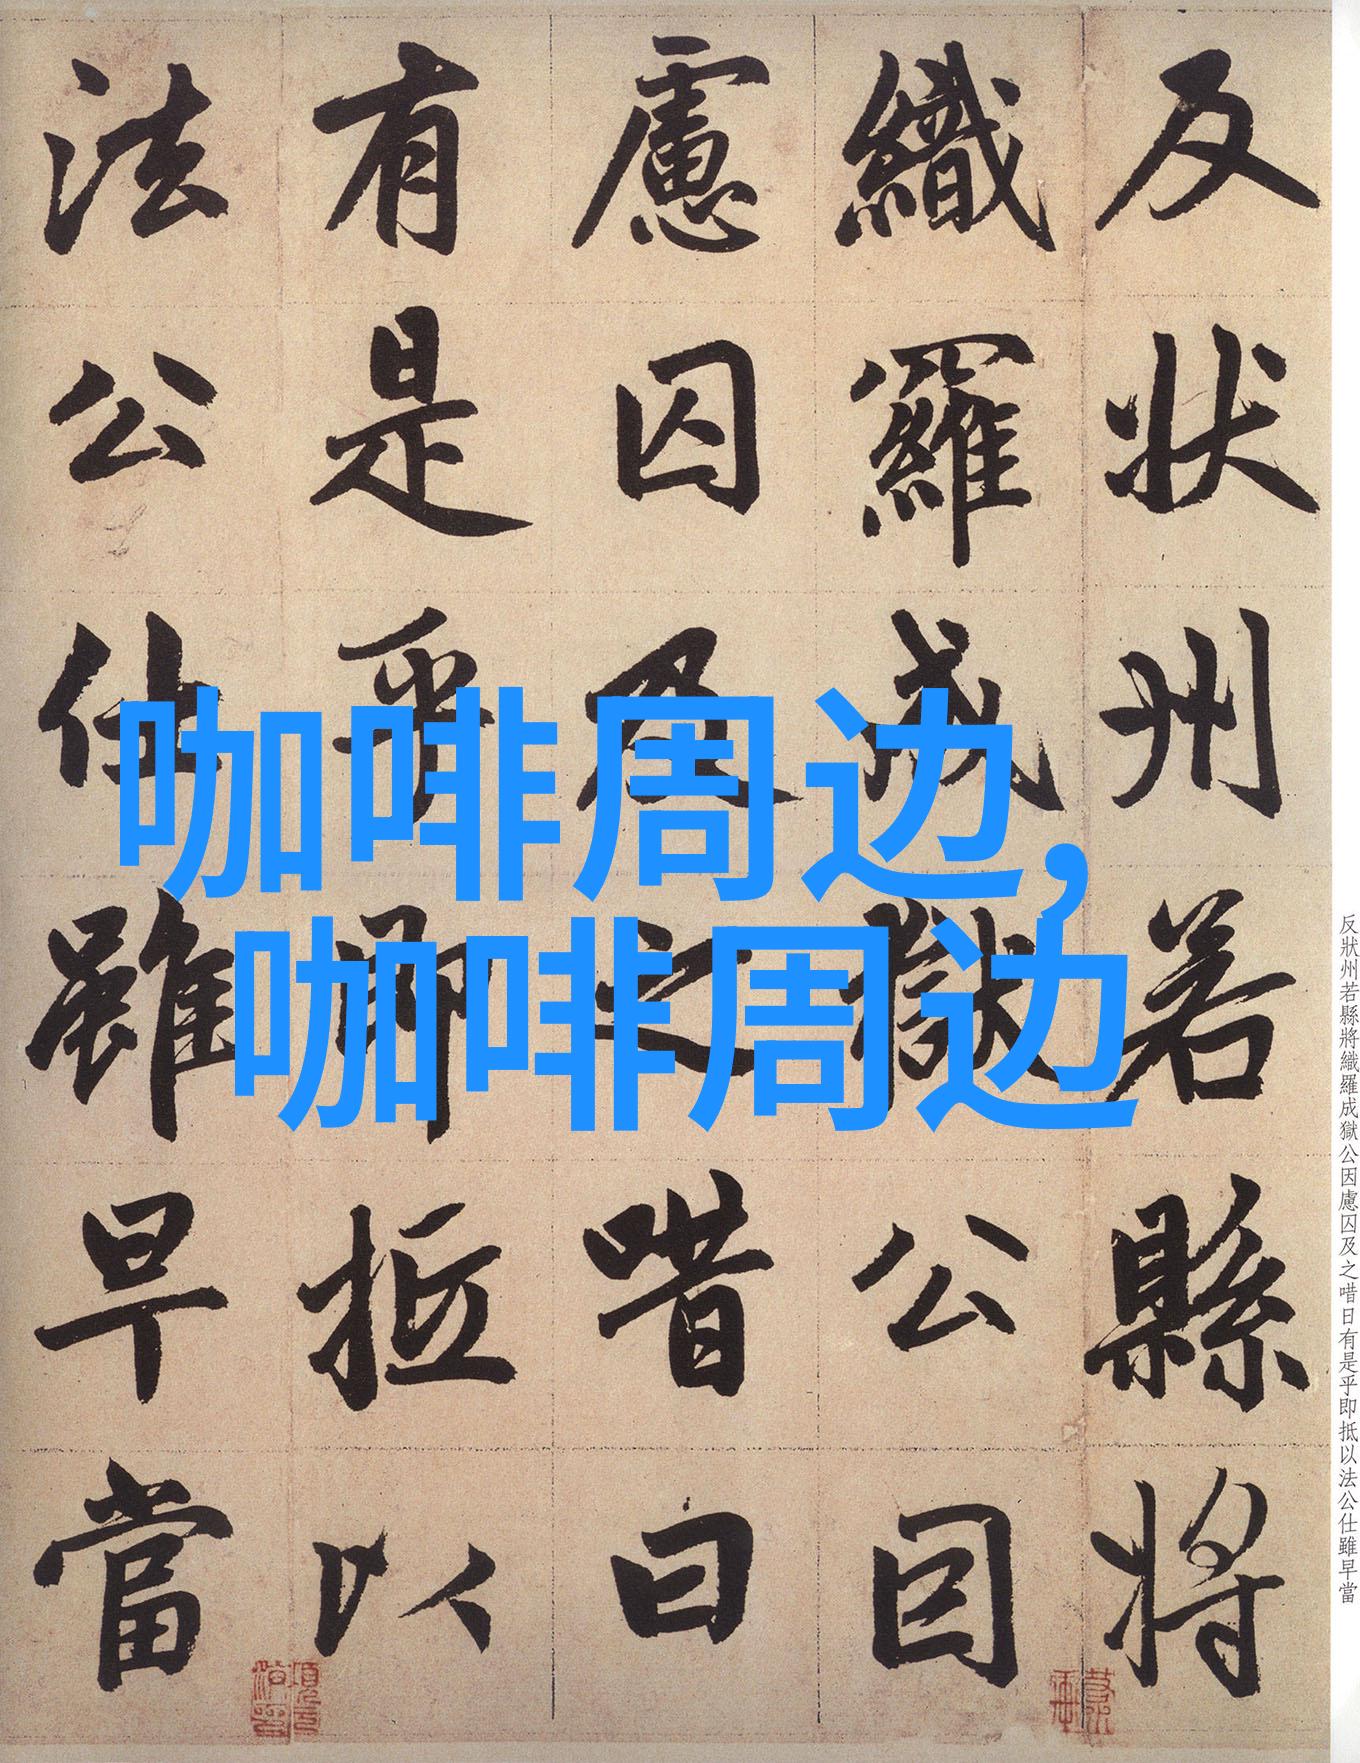 反狀州若縣將
織羅成獄公因
慮囚及之唶曰
有是乎即抵以
法公仕雖早當
咖啡周边,
咖啡周边
反狀州若縣將織羅成獄公因慮囚及之唶日有是乎即抵以法公仕雖早當